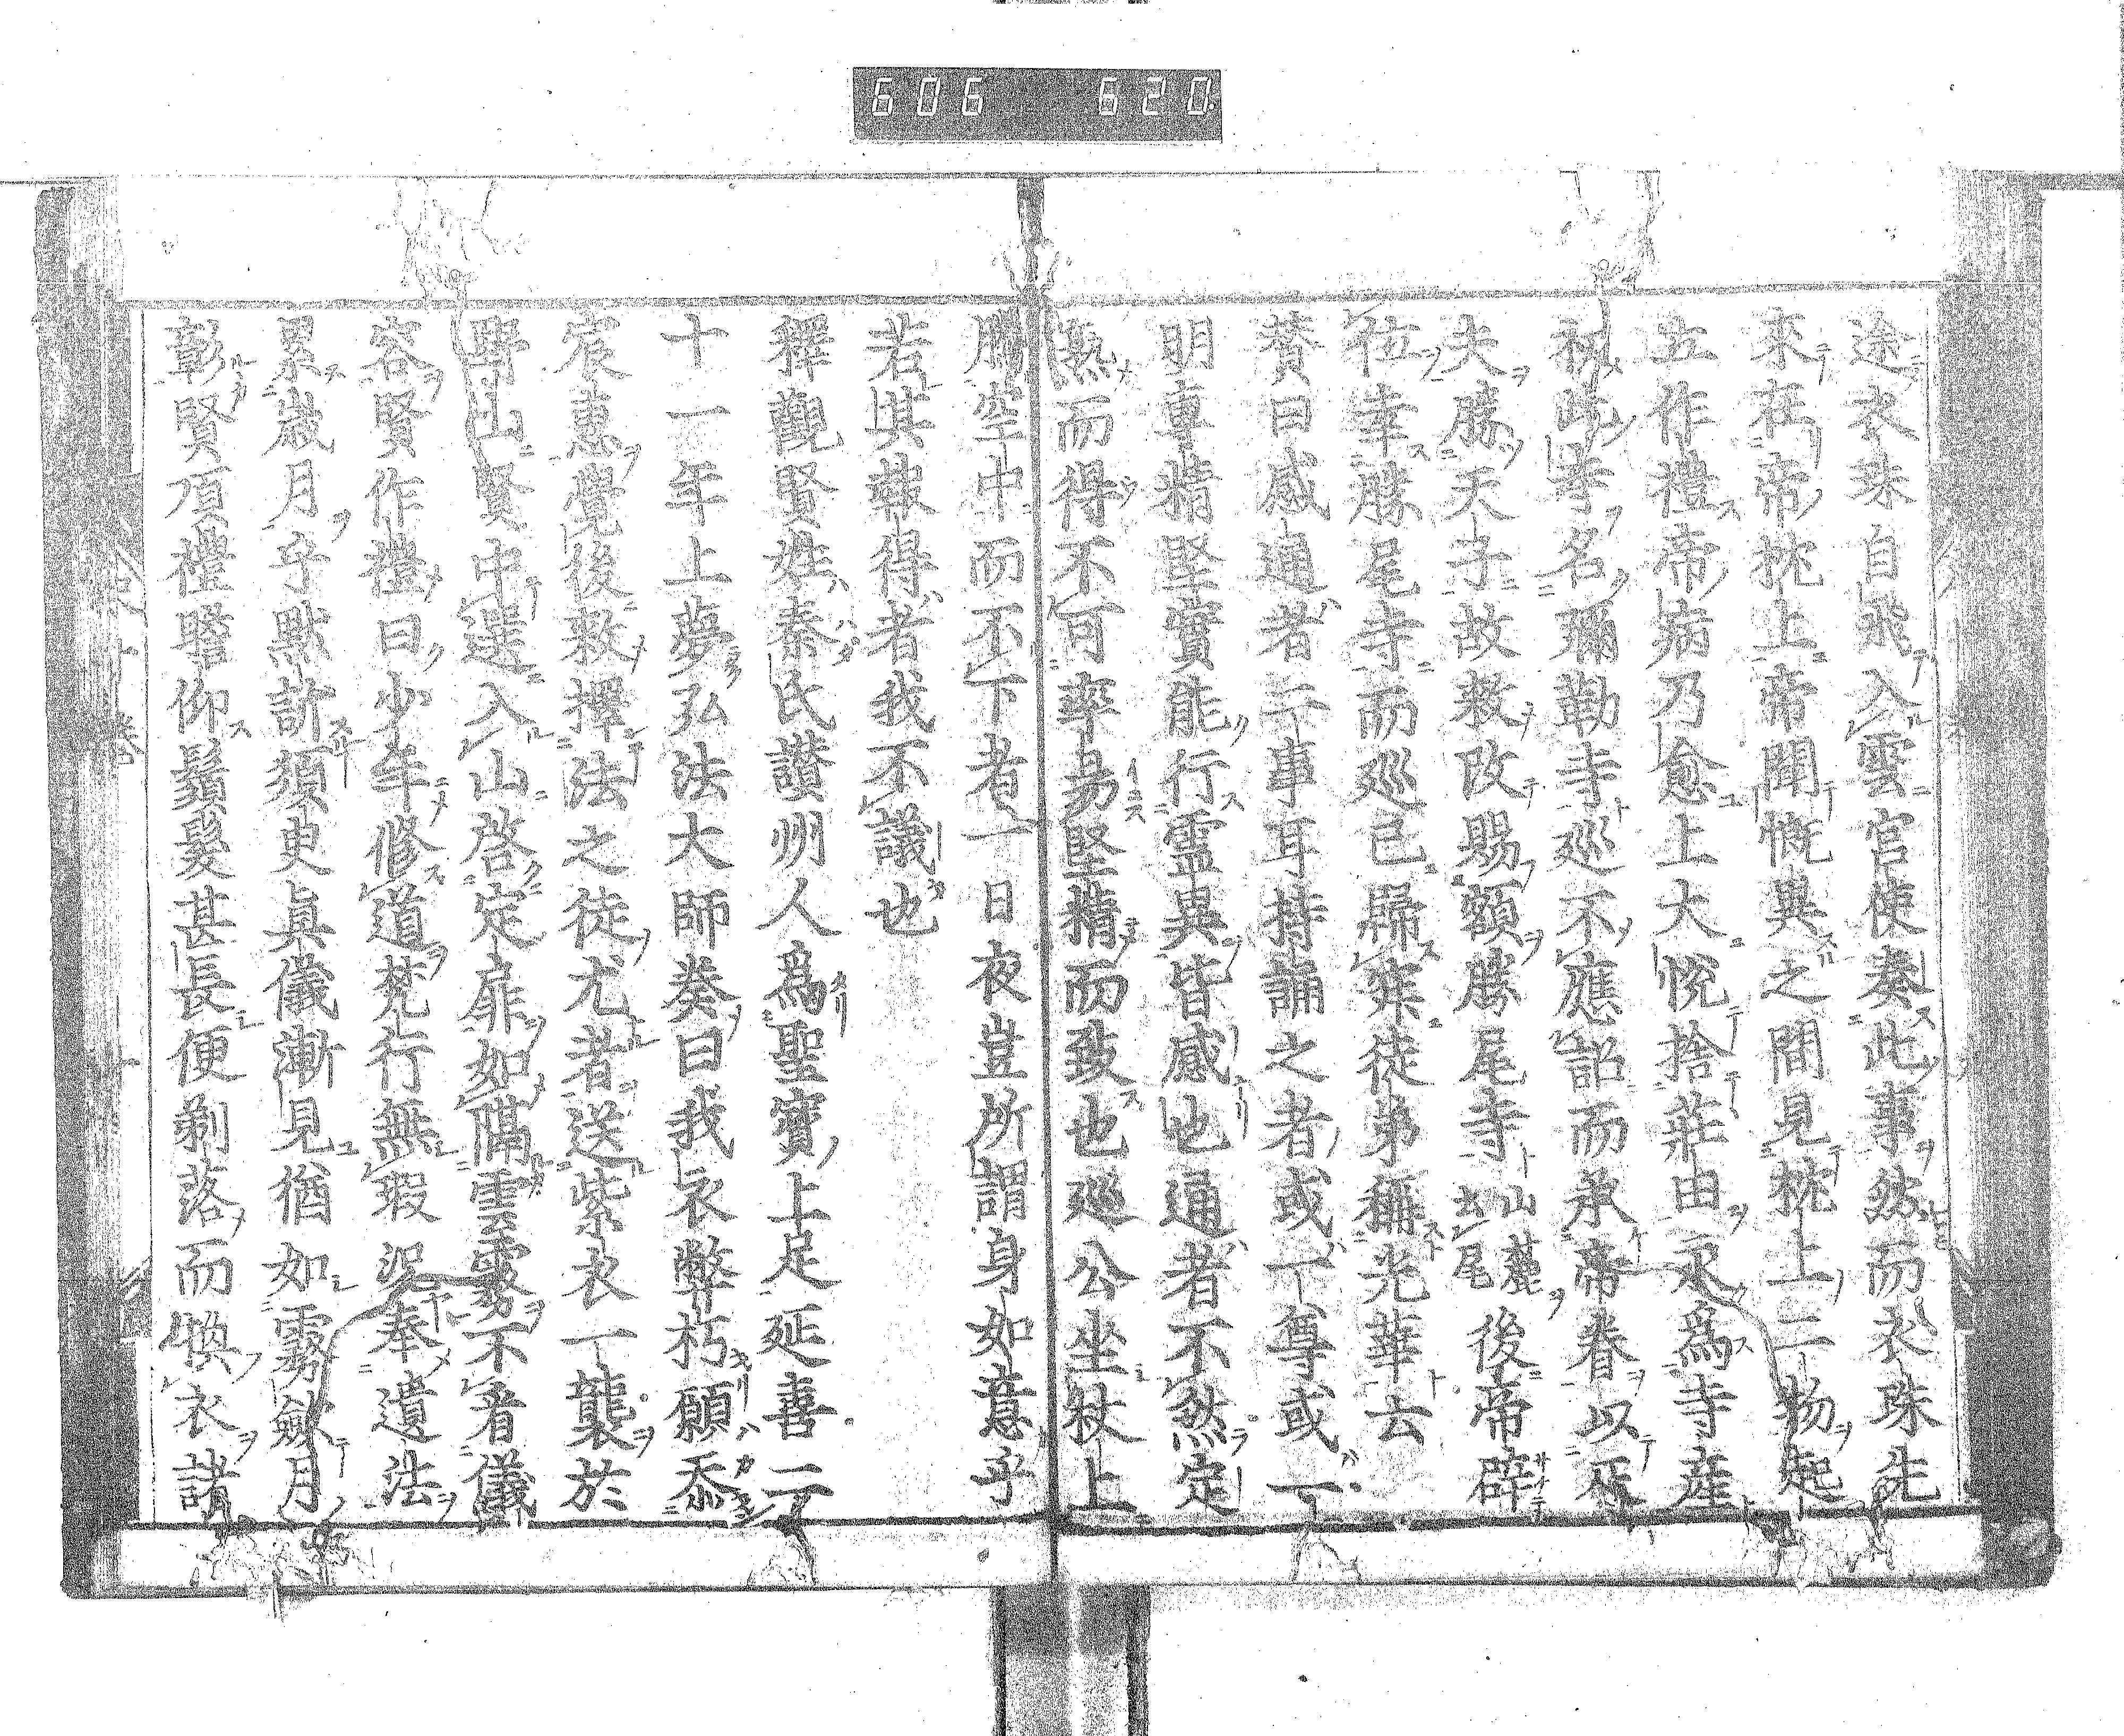 606 620
途衣珠自飛入雲官使奏此事然而衣珠先
來在帝枕上帝聞慨異之間見枕上二物起
立作禮帝病乃愈上大悅捨莊由永爲寺産
初此寺名彌勒寺巡不應詔而承帝眷以巡
夫勝天子故敕改賜額勝尾寺山麓出尾後帝辟
位幸勝尾寺而巡已歸寂徒弟稱光華云
賛曰感通者二事耳持誦之者或一尊或一
明專精堅實能行靈異皆感也通者不然定
熟而得不可率易堅精而致也巡公坐杖上
騰空中而不下者一日夜豈所謂身如意乎
若其報得者我不議也
釋觀賢姓秦氏讃州人爲聖寶上足延喜二
十一年上夢弘法大師奏曰我衣弊朽願忝
宸惠覺後敕擇法之徒尤者送紫衣一襲於
野山賢中選入山啓定扉如隔雲霧不看儀
容賢作禮曰少年修道梵行無瑕況奉遺法
累歳月乎默訴須臾眞儀漸見猶如霧斂月
彰賢頂禮瞻仰鬚髮甚長便剃落而換衣諸